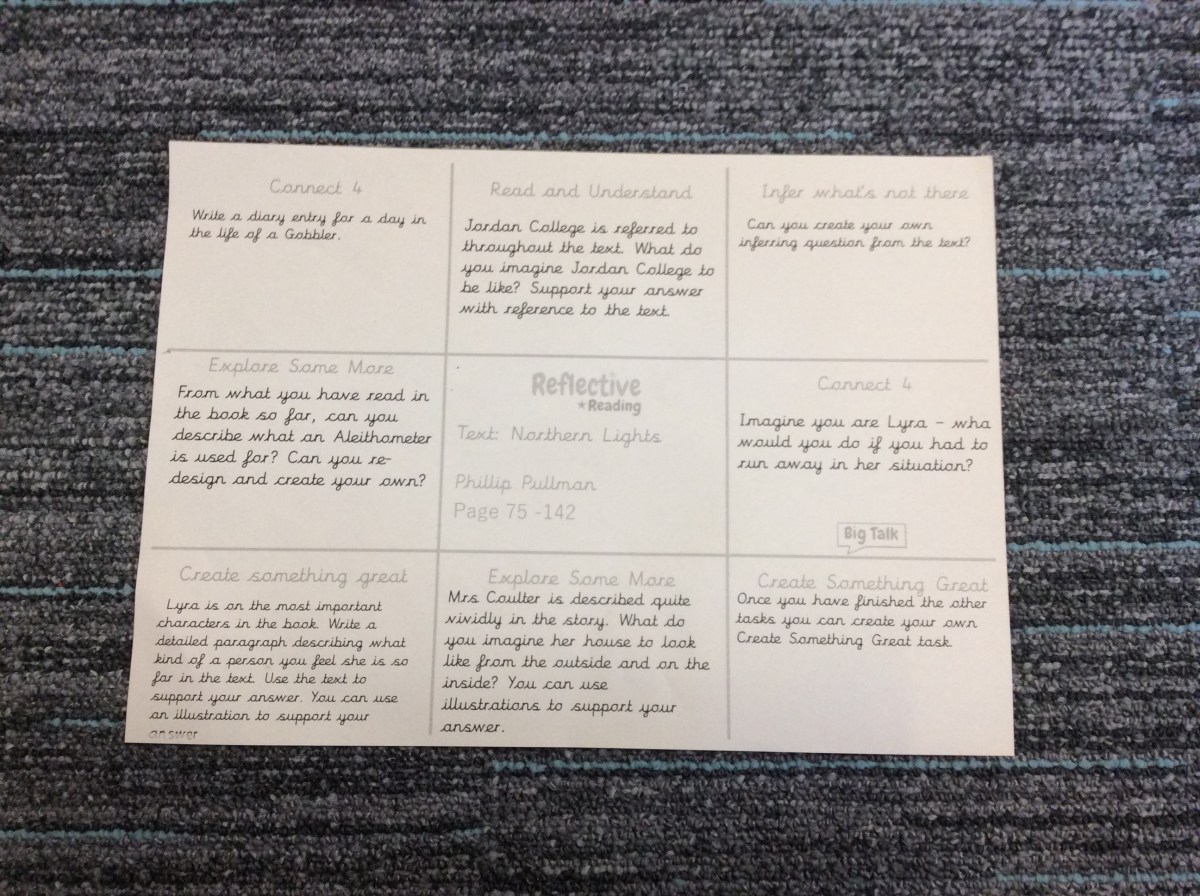 Connect 4
Write a diary entry for a day in
the life of a Gobbler.
Read and Understand
Jordan College is referred to
throughout the text. What do
you imagine Jordan College to
be like? Support your answer
with reference to the text.
Infer what's not there
Can you create your own
inferring question from the text?
Explore Some More
From what you have read in
the book so far, can you
describe what an Aleithometer
is used for? Can you re-
design and create your own?
Reflective
Reading
Text: Northern Lights
Phillip Pullman
Page 75 -142
Connect 4
Imagine you are Lyra – wha
would you do if you had to
run away in her situation?
Big Talk
Create something great
Lyra is on the most important
characters in the book. Write a
detailed paragraph describing what
kind of a person you feel she is so
far in the text. Use the text to
support your answer. You can use
an illustration to support your
answer
Explore Some More
Mrs Coulter is described quite
vividly in the story. What do
you imagine her house to look
like from the outside and on the
inside? You can use
illustrations to support your
answer.
Create Something Great
Once you have finished the other
tasks you can create your own
Create Something Great task.